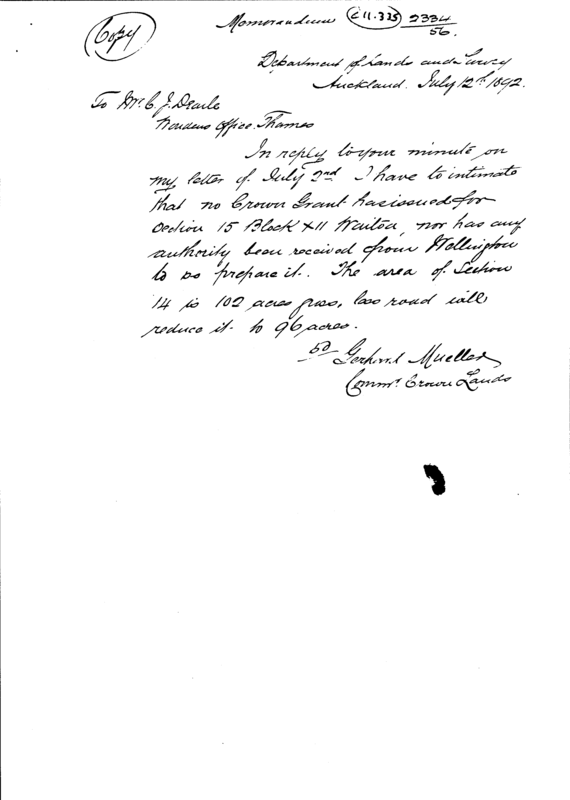 Copy
Memorandum C 11.325 2334/56.
Department of Lands and Survey
Auckland. July 12th 1892.
To Mr. C. J. Dearle
Wardens Office. Thames
In reply to your minute on
my letter of July 2nd I have to intimate
that no Crown Grant has issued for
Section 15 Block XII Waitoa, nor has any
authority been received from Wellington
to so prepare it. The area of Section
14 is 102 acres gross, less road will
reduce it to 96 acres.
sd Gerhard Mueller
Commr. Crown Lands